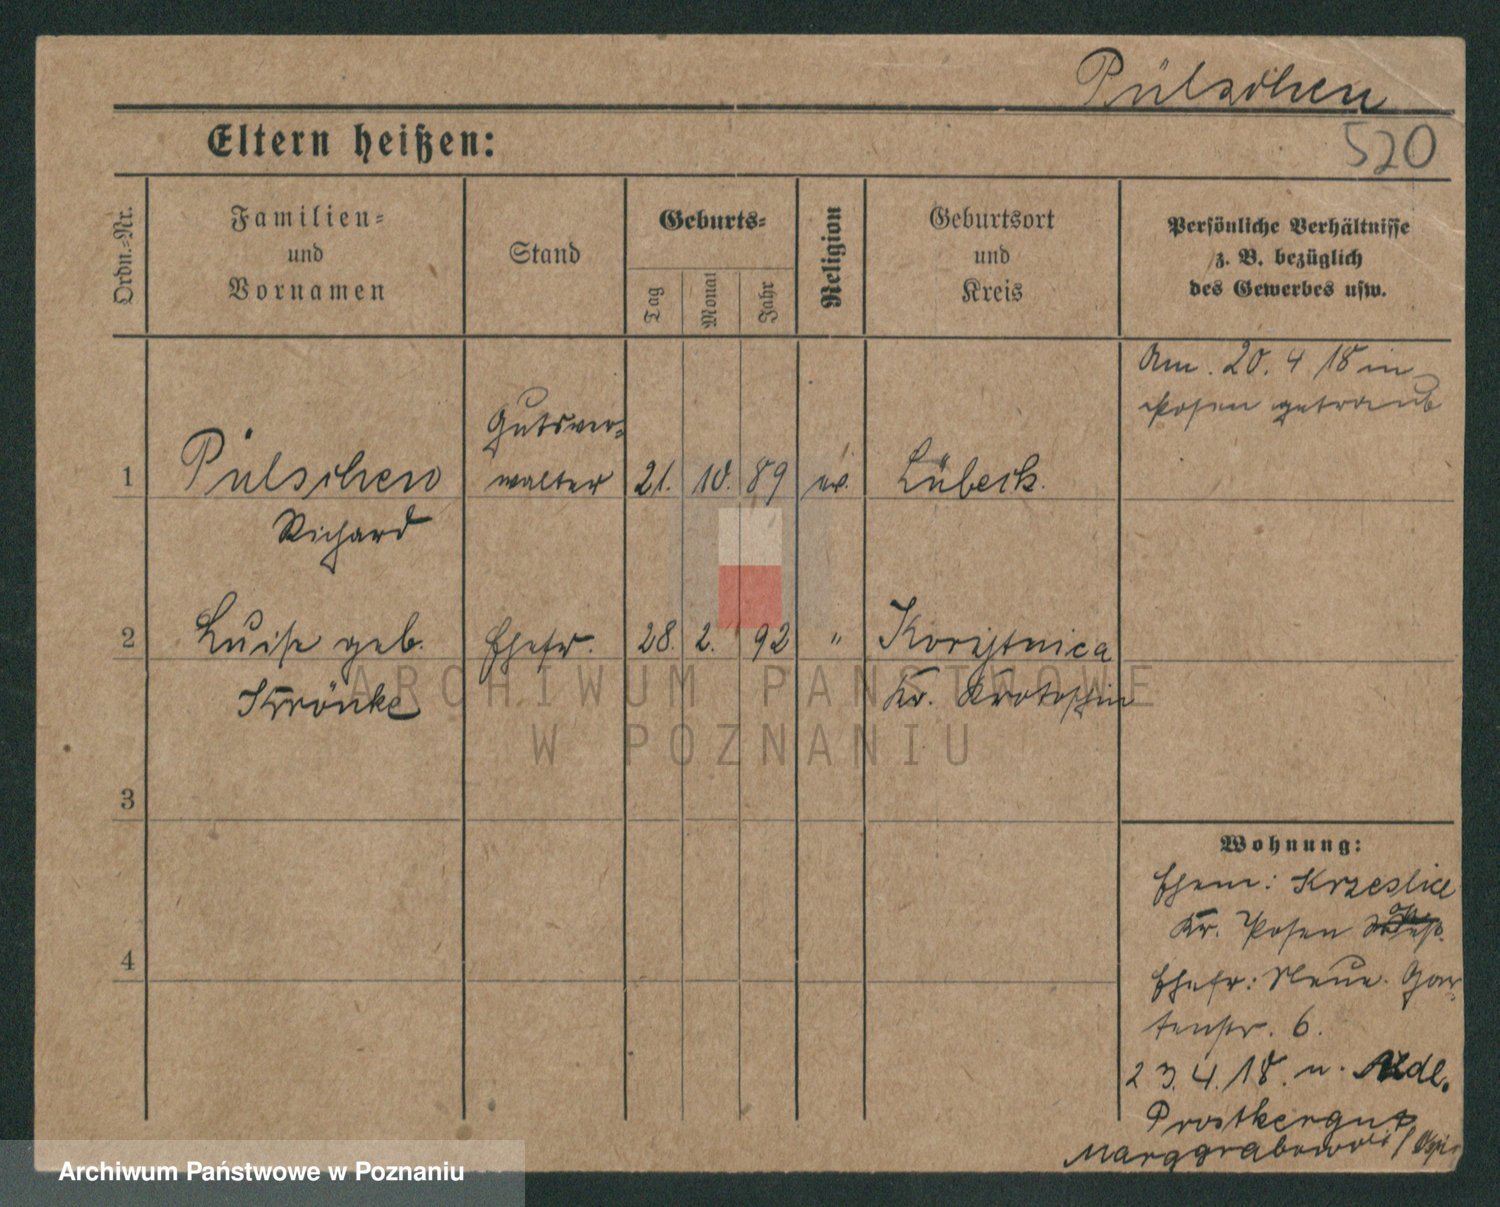 Pülschen
520
Eltern heißen:
Ordn.-Nr.
Familien-
und
Vornamen
Stand
Geburts-
Tag
Monat
Jahr
Religion
Geburtsort
und
Kreis
Persönliche Verhältnisse
z. B. bezüglich
des Gewerbes usw.
Am. 20. 4 18 in
Posen getraut
1
Pülschen
Richard
Gutsver-
walter
21. 10. 89
ev.
Lübeck.
2
Luise geb.
Krönke
Ehefr.
28. 2. 92
"
Korytnica
Kr. Krotoschin
3
4
Wohnung:
Ehem: Krzeslice
Kr. Posen
Ehefr: Neue. Gar-
tenstr. 6.
23. 4. 18. n.
Prostkergut
Marggrabowa /
ARCHIWUM PAŃSTWOWE
W POZNANIU
Archiwum Państwowe w Poznaniu